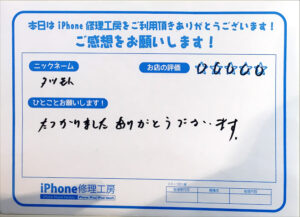 本日は iPhone 修理工房をご利用頂きありがとうございます！
ご感想をお願いします！
ニックネーム
お店の評価
☆☆☆☆☆
ひとことお願いします！
たすかりました ありがとうございます。
iPhone修理工房